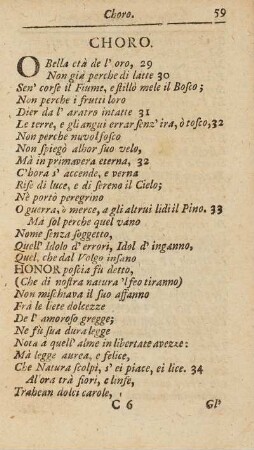 Choro. 59
CHORO.
O Bella età de l' oro, 29
Non già perche di latte 30
Sen' corse il Fiume, e stillò mele il Bosco;
Non perche i frutti loro
Dier da l' aratro intatte 31
Le terre, e gli angui errar senz' ira, ò tosco, 32
Non perche nuvol fosco
Non spiegò alhor suo velo,
Mà in primavera eterna, 32
C'hora s' accende, e verna
Rise di luce, e di sereno il Cielo;
Nè portò peregrino
O guerra, ò merce, a gli altrui lidi il Pino. 33
Ma sol perche quel vano
Nome senza soggetto,
Quell' Idolo d' errori, Idol d' inganno,
Quel, che dal Volgo insano
HONOR poscia fù detto,
(Che di nostra natura 'l feo tiranno)
Non mischiava il suo affanno
Frà le liete dolcezze
De l' amoroso gregge;
Ne fù sua dura legge
Nota à quell' alme in libertate avezze:
Mà legge aurea, e felice,
Che Natura scolpì, s' ei piace, ei lice. 34
Al'ora trà fiori, e linfe,
Trahean dolci carole,
C 6 Gl'